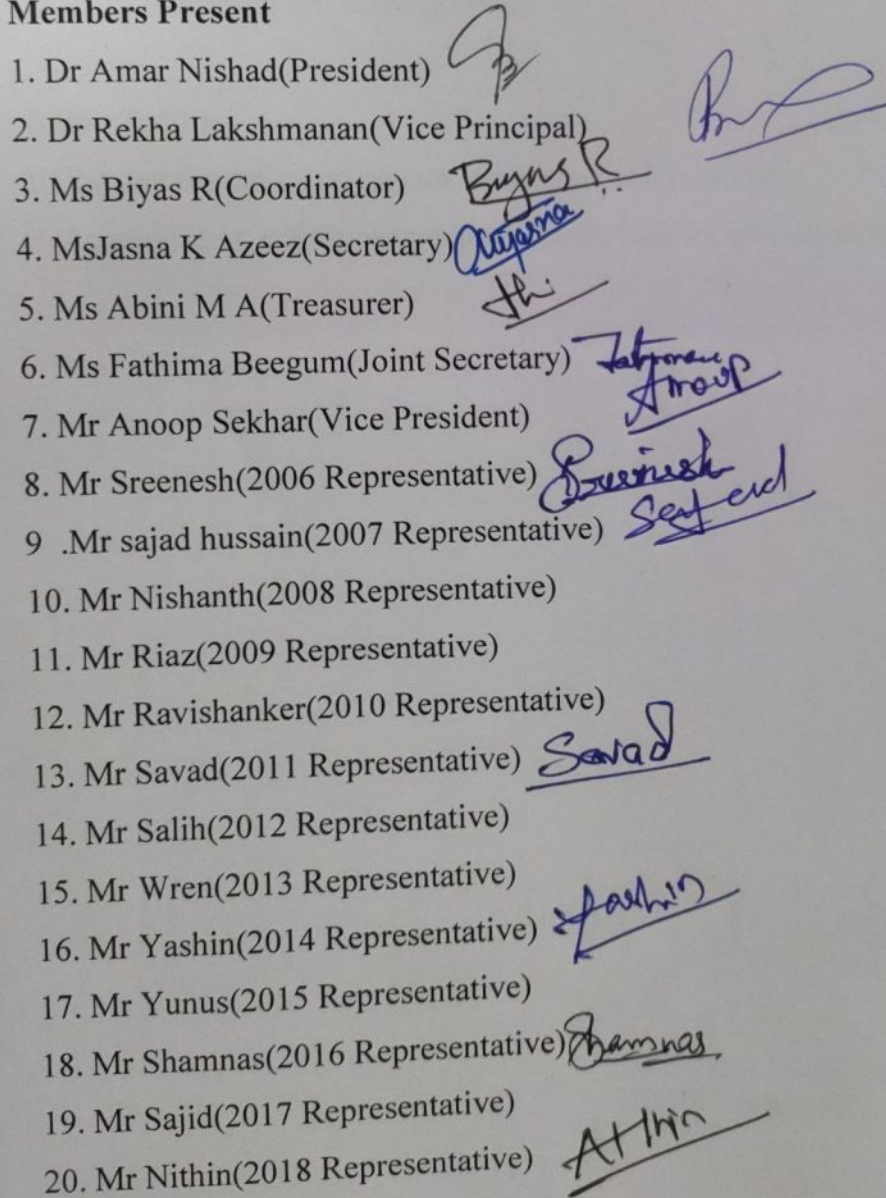 Members Present
1. Dr Amar Nishad(President)
2. Dr Rekha Lakshmanan(Vice Principal)
3. Ms Biyas R(Coordinator) Biyas R
4. MsJasna K Azeez(Secretary)
5. Ms Abini M A(Treasurer)
6. Ms Fathima Beegum(Joint Secretary)
Anoop
7. Mr Anoop Sekhar(Vice President)
8. Mr Sreenesh(2006 Representative) Sreenesh
9 .Mr sajad hussain(2007 Representative)
10. Mr Nishanth(2008 Representative)
11. Mr Riaz(2009 Representative)
12. Mr Ravishanker(2010 Representative)
13. Mr Savad(2011 Representative) Savad
14. Mr Salih(2012 Representative)
15. Mr Wren(2013 Representative)
16. Mr Yashin(2014 Representative) Yashin
17. Mr Yunus(2015 Representative)
18. Mr Shamnas(2016 Representative) Shamnas
19. Mr Sajid(2017 Representative)
20. Mr Nithin(2018 Representative)